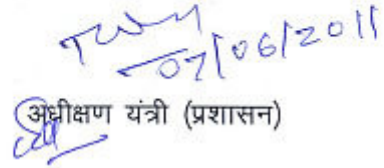 07/06/2011
अधीक्षण यंत्री (प्रशासन)